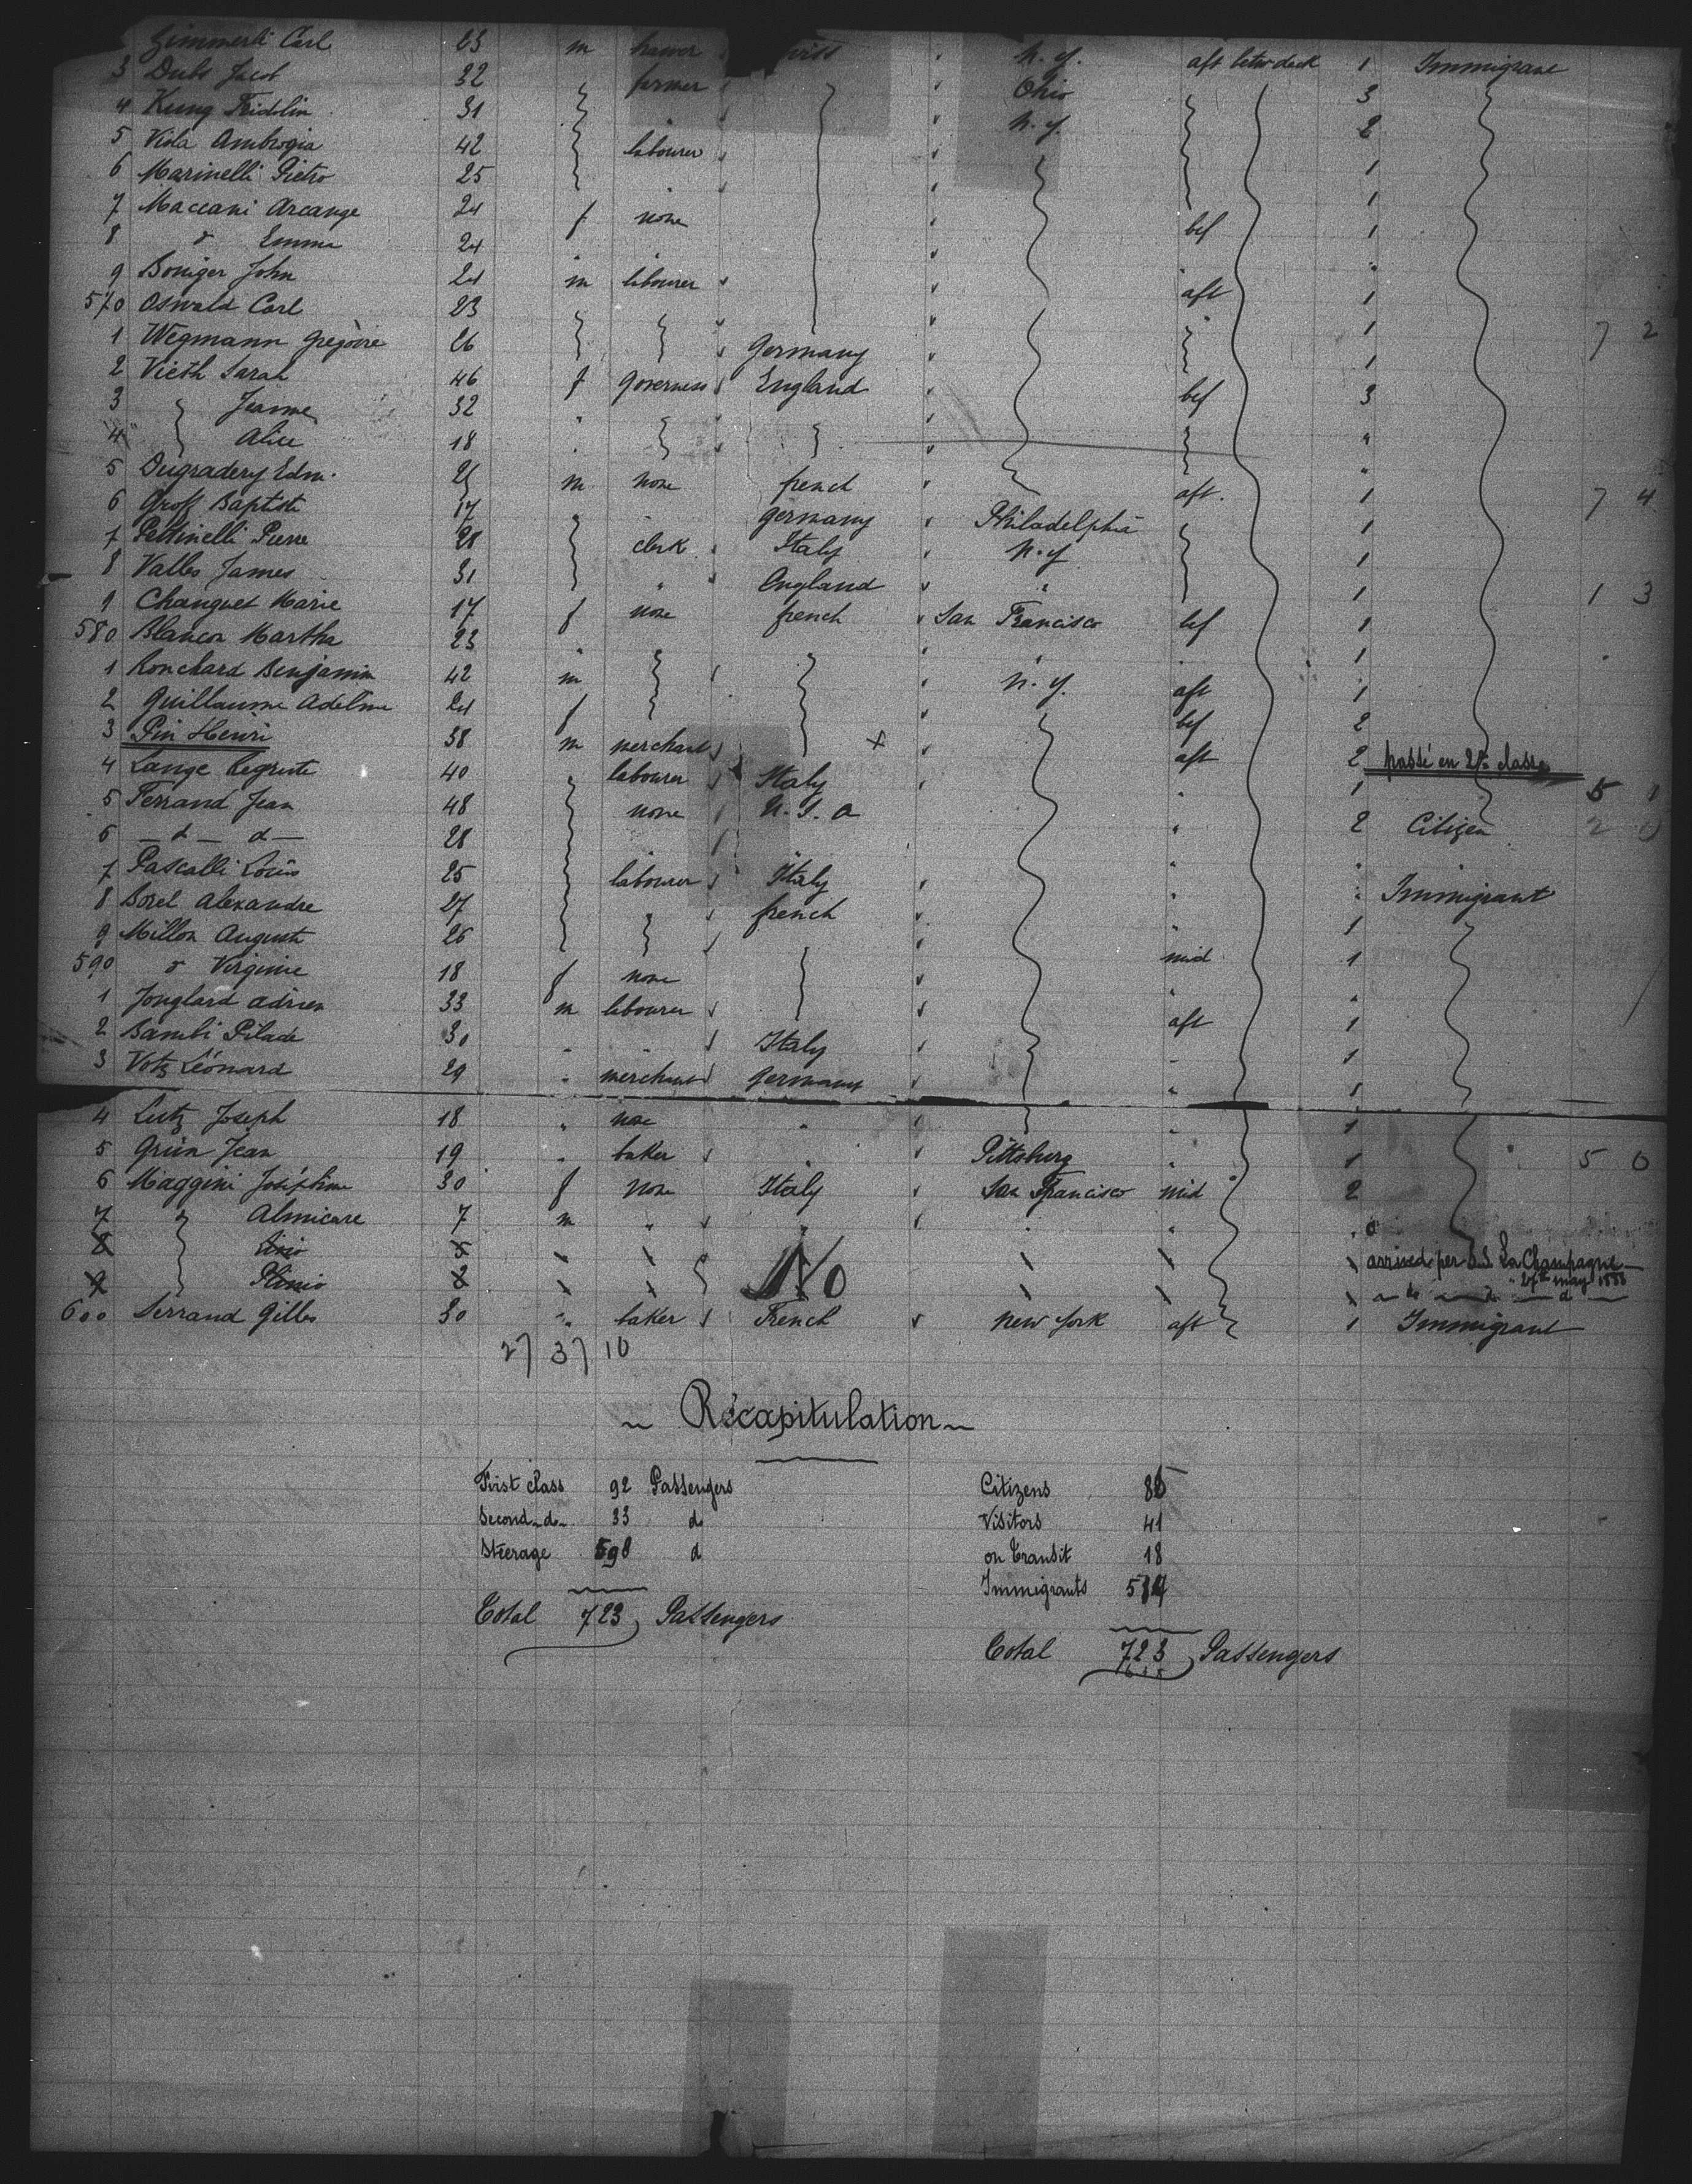 Zimmerli Carl 23 m Swiss N.Y. aft betw deck 1 Immigrant
3 Dubs Jacob 32 farmer Ohio 3
4 Kung Fridolin 31 N.Y. 2
5 Viola Ambrogia 42 labourer 1
6 Marinelli Pietro 25 1
7 Maccani Arcange 24 f none bef 1
8 d Emma 24 "
9 Boniger John 24 m labourer aft 1
570 Oswald Carl 23 1
1 Wegmann Grégoire 26 Germany 1 7 2
2 Vieth Sarah 46 f Governess England bef 3
3 Jeanne 32 "
4 Alice 18 "
5 Dugradery Edm. m none french aft. 1
6 Groff Baptiste 17 " Germany Philadelphia 1 7 4
7 Pettinelli Pierre 28 clerk Italy N.Y 1
8 Valles James 31 " England " 1
9 Changuet Marie 17 f none french San Francisco bef 1 1 3
580 Blancon Martha 23 " " " 1
1 Ronchard Benjamin 42 m N.Y. aft 1
2 Guillaume Adeline 24 f bef 2
3 Pin Henri 38 m merchant x aft 2 passé en 2de classe
4 Lange 40 labourer Italy " 1
5 Ferrand Jean 48 none U.S.a " 2 Citizen 5 1
6 — d — d — 28 " " 2 0
7 Pascalli Louis 25 labourer Italy " " Immigrant
8 Borel Alexandre 27 french " 1
9 Millon Auguste 26 mid 1
590 d Virginie 18 f none " "
1 Jouglard adrien 33 m labourer aft 1
2 Bambi Pilade 30 " " Italy " 1
3 Votz Léonard 29 " merchant Germany " 1
4 Lutz Joseph 18 " none " " 1
5 Grün Jean 19 " baker " Pittsburg " 1 5 0
6 Maggini Joséphine 30 f none Italy San Francisco mid 2
7 d Almicare 7 m " " " " "
8 Livio 5 No arrived per S.S. La Champagne
9 Plinio 2 27th may 1888
— d — d —
600 Serrand Gilles 30 " baker French New York aft 1 Immigrant
27 37 10
~ Récapitulation ~
First class 92 Passengers
Second-d- 33 d
Steerage 598 d
Total 723 Passengers
Citizens
Visitors 41
on Transit 18
Immigrants
Total 723 Passengers